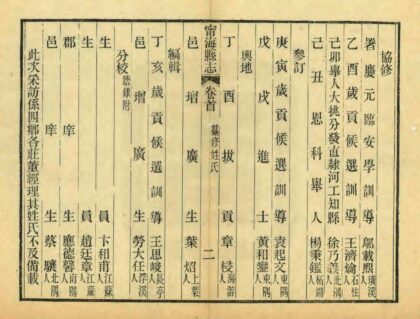 協修
署慶元臨安學訓導鄔載熙珊溪人
乙酉歲貢候選訓導王濟人
己卯舉人大挑分發直隸河工知縣徐乃義北隅人
己丑恩科舉人楊秉鑑人
參訂
庚寅歲貢候選訓導袁起文東隅人
戊戌進士黃和鑾東隅人
輿地
丁酉拔貢章梫海游人
甯海縣志 卷首 纂修姓氏 二
邑增廣生葉炤上葉人
編輯
丁亥歲貢候選訓導王思峻長亭人
邑增廣生勞大任浮溪人
分校謄錄附
生員卞相甫江蘇人
生員趙廷章江蘇人
郡庠生應德馨南隅人
邑庠生蔡驤北隅人
此次采訪係四鄉各莊董經理其姓氏不及備載